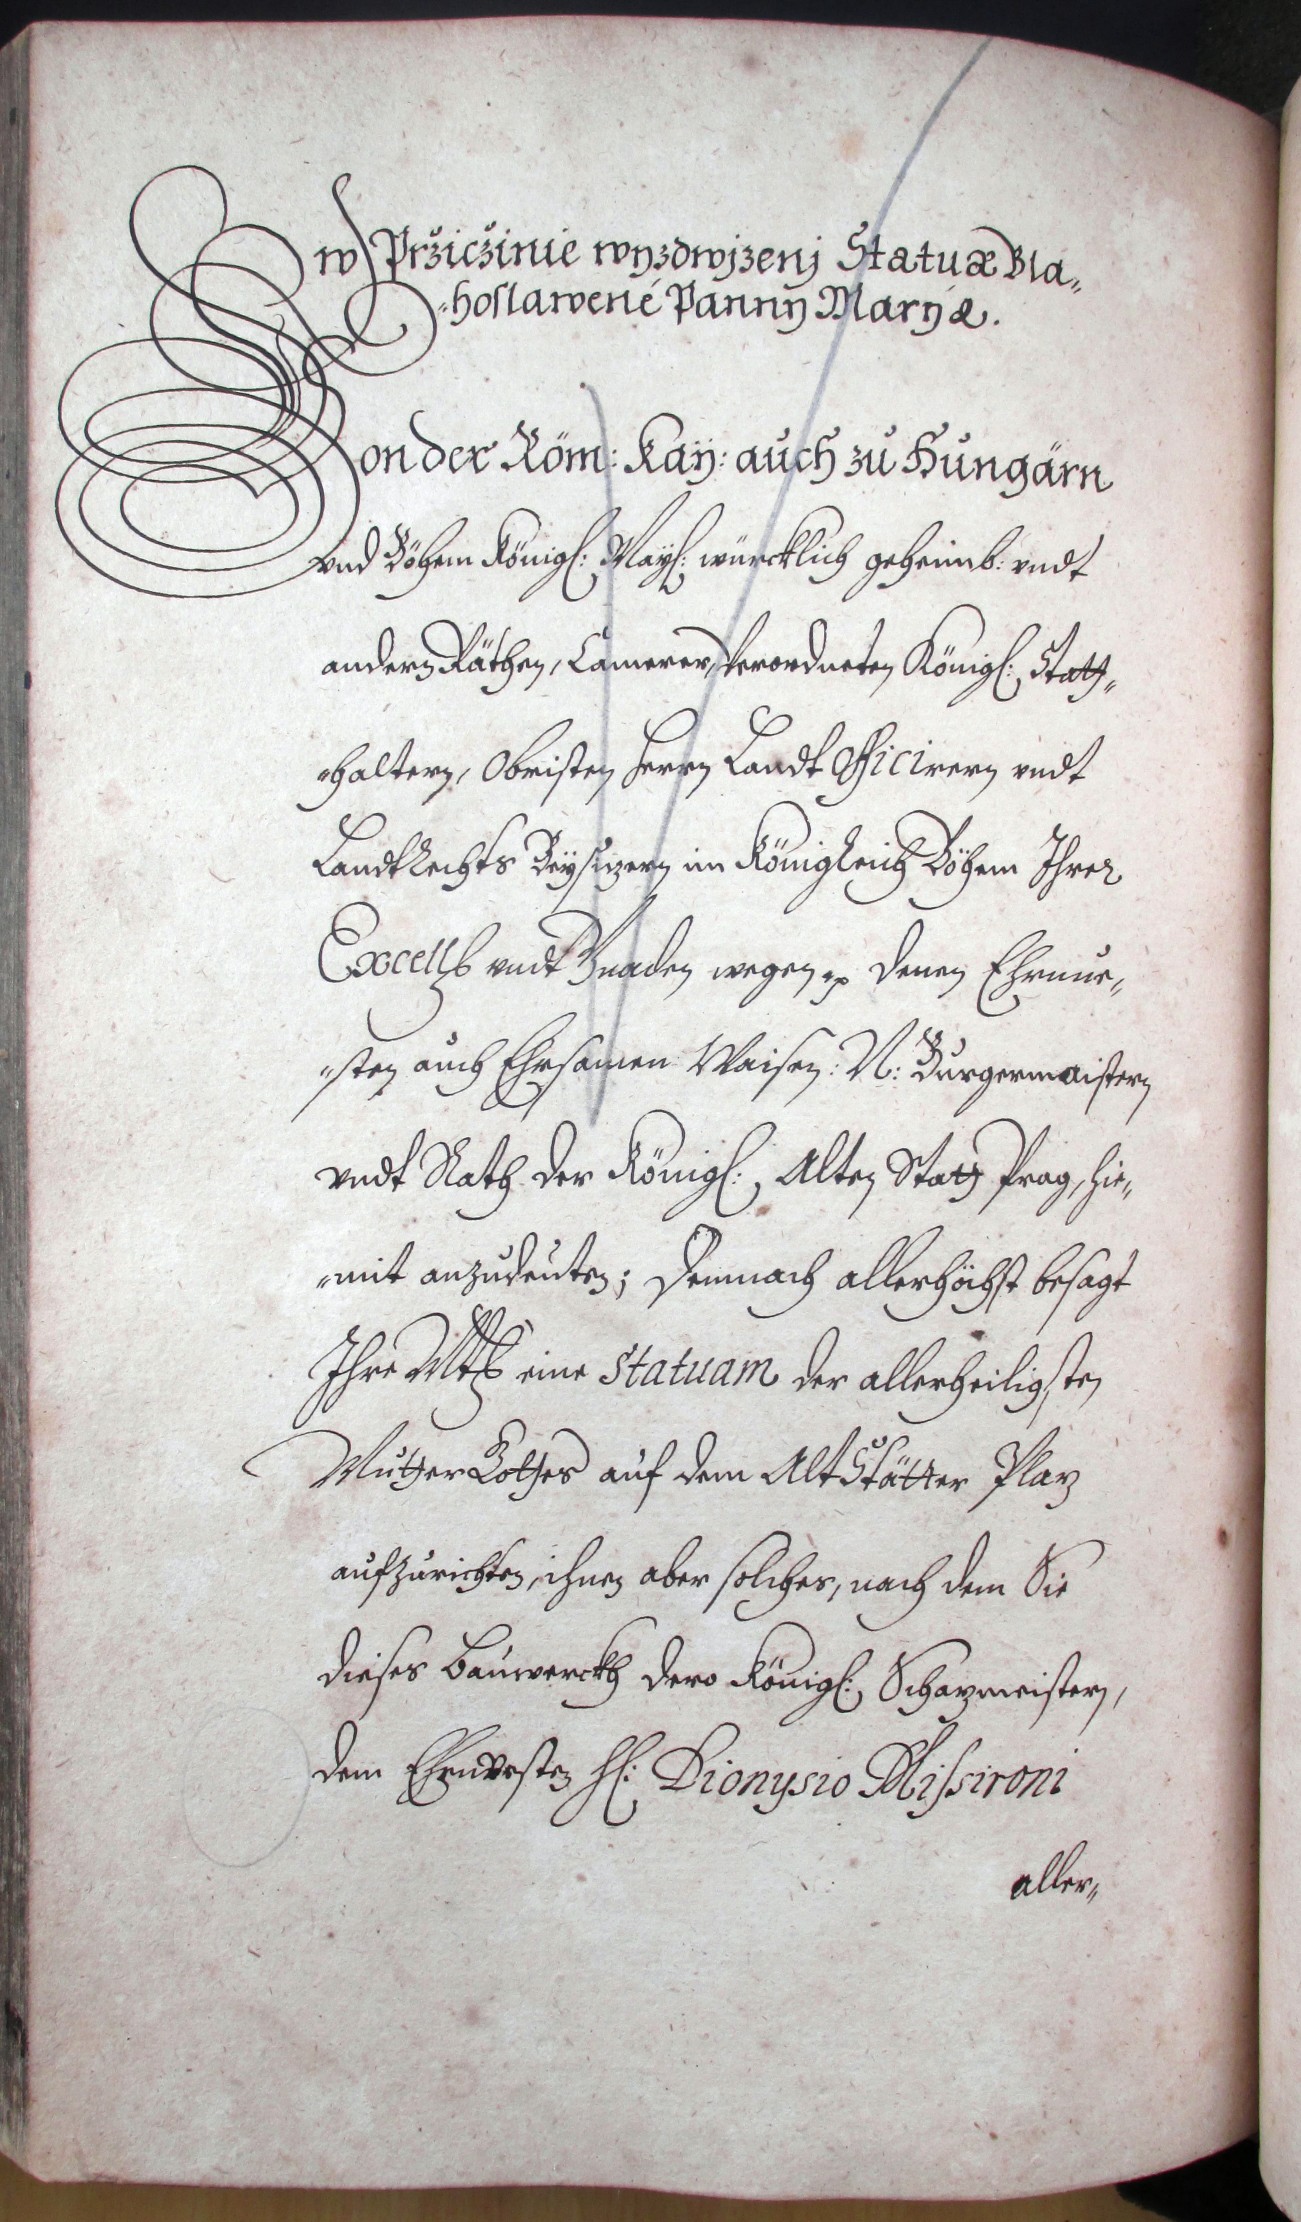 w Pržicžinie wyzdwjzenj Statuæ Bla„
„hoslawené Panny Maryæ.
Von der Röm: Kaÿ: auch zu Hungärn
vnd Böhem Königl: Maÿl: würcklich geheimb: vndt
andern Räthen, Camerer, Verordneten Königl: Statt„
„haltern, Obristen Herrn Landt Officirern vndt
LandtRechts Beÿsizern im Königreich Böhem Ihrer
Excellz vndt Gnaden wegen denen Ehrnue„
„sten auch Ehrsamen Waisen: N: Burgermaistern
vndt Rath der Königl: Alten Statt Prag, hie„
„mit anzudeuten; Demnach allerhöchst besagt
Ihre Mtt eine Statuam der allerheiligsten
Mutter Gottes auf dem AltStätter Plaz
aufzurichten, ihnen aber solches, nach dem Sie
dieses Bauwerckh dero Königl: Schazmeistern,
dem Ehrnvesten H: Dionysio Missironi
aller„